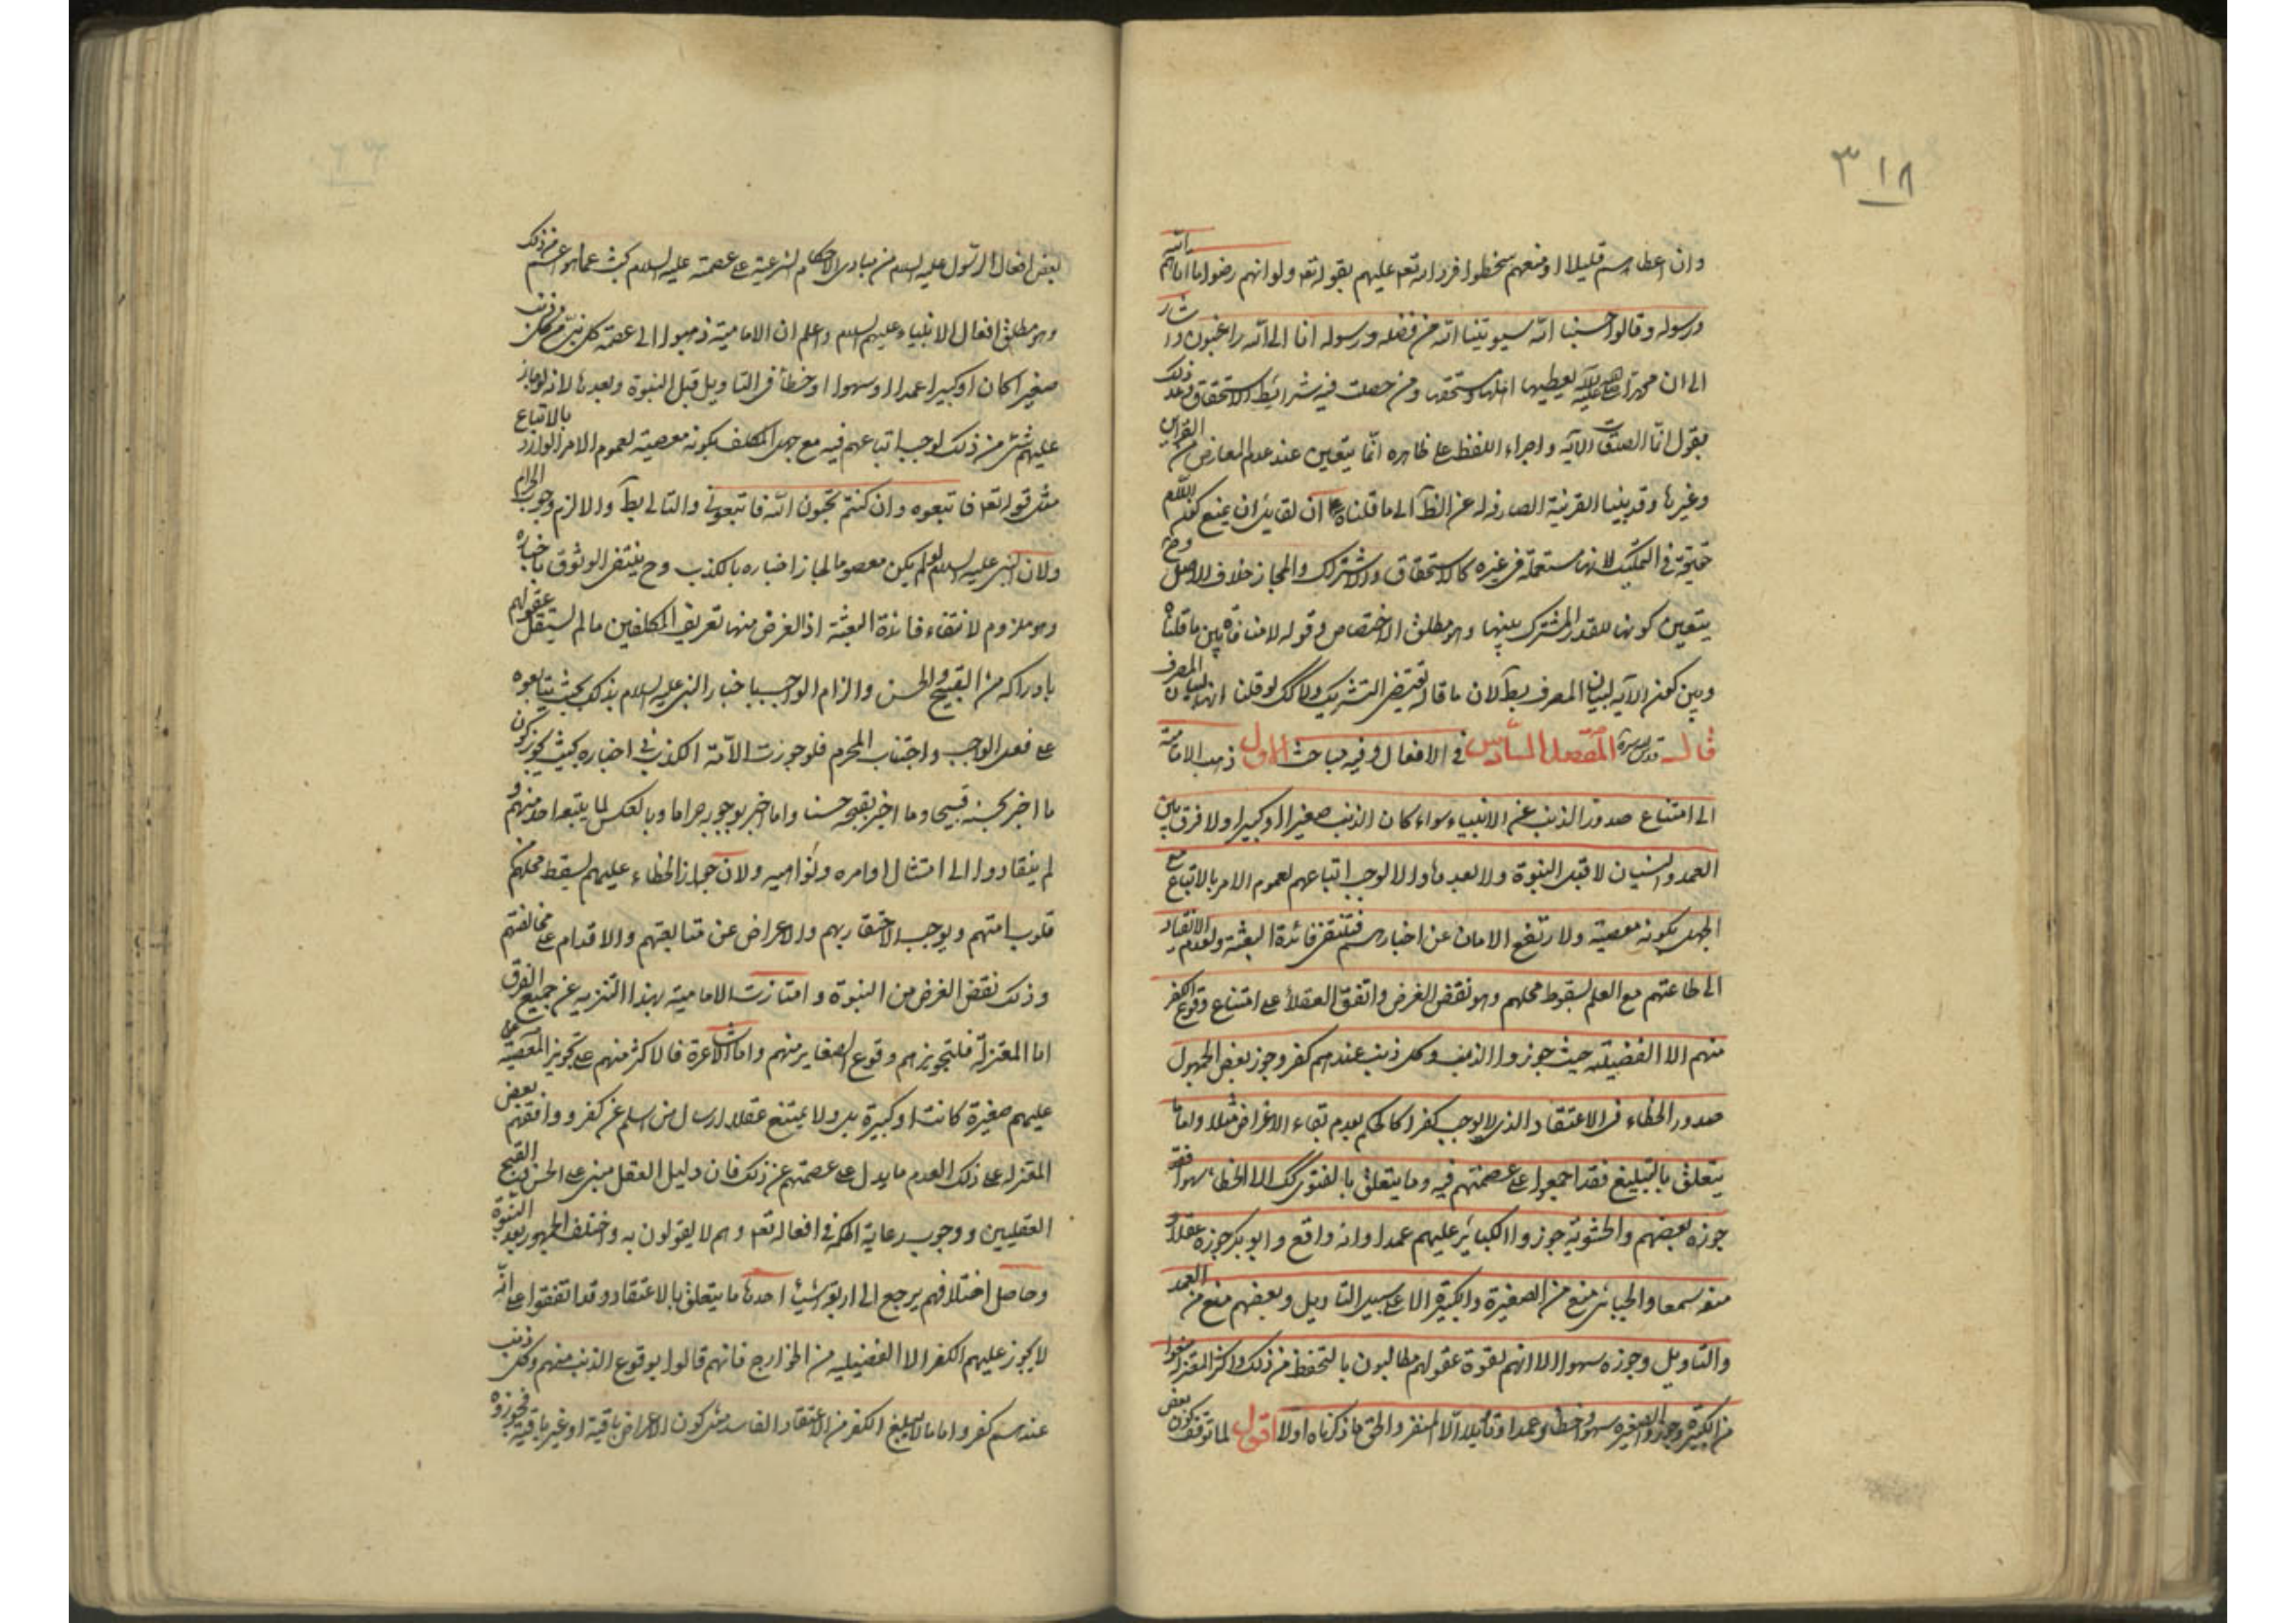 ٣١٨
وان اعطاهم قليلا او منعهم سخطوا فرد الله تعه عليهم بقوله تعه ولو انهم رضوا ما اتاهم الله
ورسوله وقالوا حسبنا الله سيوتينا الله من فضله ورسوله انا الى الله راغبون واشار
الى ان محمدا صلى الله عليه وآله يعطيها اهلها ومستحقها ومن حصلت فيه شرائط الاستحقاق ذلك
بقول انما الصدقات الآية واجراء اللفظ على ظاهره انما يتعين عند عدم المعارض من القراين
وغيرها وقد بينا القرينة الصارفة له عن الظ الى ما قلناه ان لقايل ان يمنع كون اللام
حقيقة في التمليك لانها مستعملة في غيره كالاستحقاق والاشتراك والمجاز خلاف الاصل وح
يتعين كونها للقدر المشترك بينها وهو مطلق الاختصاص وقوله لا منافاة بين ما قلناه
وبين كون الآية لبيان المصرف بط لان ما قاله يقتضي التشريك ولا كك لو قلنا انها لبيان المصرف
قال قدس سره الفصل السادس في الافعال وفيه مباحث الاول ذهب الامامية
الى امتناع صدور الذنب عن الانبياء سواء كان الذنب صغيرا او كبيرا ولا فرق بين
العمد والنسيان لا قبل النبوة ولا بعدها والا لوجب اتباعهم لعموم الامر بالاتباع مع
الجهل بكونه معصية ولارتفع الامان عن اخبارهم فتنتفي فائدة البعثة ولعدم الانقياد
الى طاعتهم مع العلم لسقوط محلهم وهو نقض الغرض واتفق العقلاء على امتناع وقوع الكفر
منهم الا الفضيلية حيث جوزوا الذنب وكل ذنب عندهم كفر وجوز بعض الجمهول
صدور الخطاء في الاعتقاد الذي لا يوجب كفرا كالحكم بعدم بقاء الاعراض مثلا واما ما
يتعلق بالتبليغ فقد اجمعوا على عصمتهم فيه وما يتعلق بالفتوى كك الا الخطاء سهوا فقد
جوزه بعضهم والحشوية جوزوا الكبائر عليهم عمدا وانه واقع وابو بكر جوزه عقلا و
منعه سمعا والجبائي منع من الصغيرة والكبيرة الا على سبيل التاويل وبعضهم منع من العمد
والتاويل وجوزه سهوا الا انهم لقوة عقولهم مطالبون بالتحفظ من ذلك واكثر المعتزلة منعوا
من الكبيرة وجوزوا الصغيره سهوا وخطا وعمدا وتاويلا الا المنفر والحق ما ذكرناه اولا اقول لما توقف كون بعض
بعض افعال الرسول عليه السلم من مبادى الاحكام الشرعية على عصمته عليه السلام بحث عما هو اعم من ذلك
وهو مطلق افعال الانبياء عليهم السلم واعلم ان الامامية ذهبوا الى عصمة كل نبي من كل ذنب
صغيرا كان او كبيرا عمدا او سهوا او خطأ في التاويل قبل النبوة وبعدها لانه لو جاز
عليهم شئ من ذلك لوجب اتباعهم فيه مع جهل المكلف بكونه معصية لعموم الامر الوارد بالاتباع
مثل قوله تعه فاتبعوه وان كنتم تحبون الله فاتبعوني والتالي بط والا لزم وجوب الحرام
ولان النبي عليه السلام لو لم يكن معصوما لجاز اخباره بالكذب وح ينتفي الوثوق باخباره
وهو ملزوم لانتفاء فائدة البعثة اذ الغرض منها تعريف المكلفين ما لم تستقل عقولهم
بادراكه من القبيح والحسن والزام الواجب باخبار النبي عليه السلام بذلك بحيث يتابعوه
على فعل الواجب واجتناب المحرم فلو جوزت الامة الكذب في اخباره بحيث يجوز كون
ما اخبر بحسنه قبيحا وما اخبر بقبحه حسنا وما اخبر بوجوبه حراما وبالعكس لما يتبعه احد منهم و
لم ينقادوا الى امتثال اوامره ونواهيه ولان جواز الخطاء عليهم يسقط محلهم
قلوب امتهم ويوجب الاحتقار بهم والاعراض عن متابعتهم والاقدام على مخالفتهم
وذلك نقض الغرض من النبوة وامتازت الامامية بهذا التنزيه عن جميع الفرق
اما المعتزلة فلتجويزهم وقوع الصغاير منهم واما الاشاعرة فالاكثر منهم على تجويز المعصية
عليهم صغيرة كانت او كبيرة بل ولا يمتنع عقلا ارسال من اسلم عن كفر ووافقهم بعض
المعتزلة على ذلك لعدم ما يدل على عصمتهم عن ذلك فان دليل العقل مبني على الحسن والقبح
العقليين ووجوب رعاية الحكمة في افعاله تعه وهم لا يقولون به واختلف الجمهور بعد النبوة
وحاصل اختلافهم يرجع الى اربعة اشياء احدها ما يتعلق بالاعتقاد وقد اتفقوا على انه
لا يجوز عليهم الكفر الا الفضيلية من الخوارج فانهم قالوا بوقوع الذنب منهم وكل ذنب
عندهم كفر واما ما لا يبلغ الكفر من الاعتقاد الفاسد مثل كون الاعراض باقية او غير باقية فجوزوه